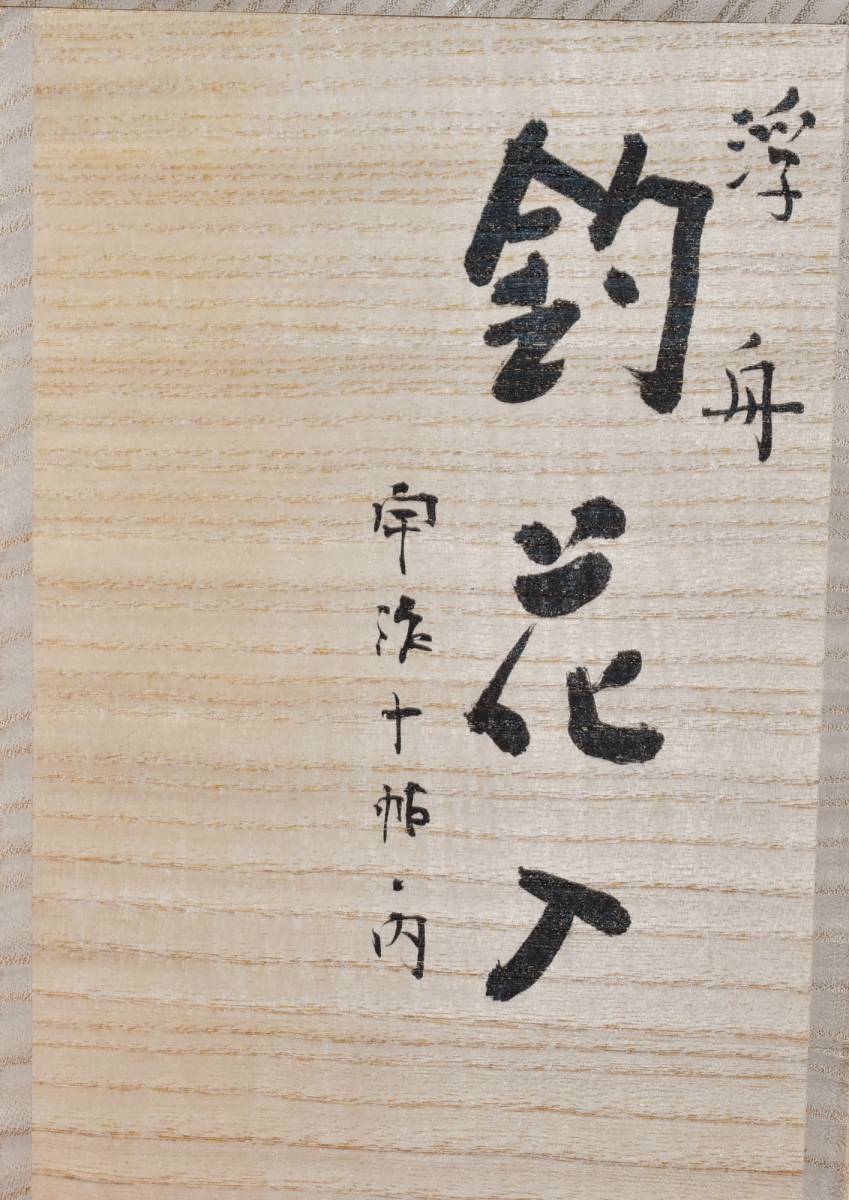 浮舟
釣花入
宇治十帖・内